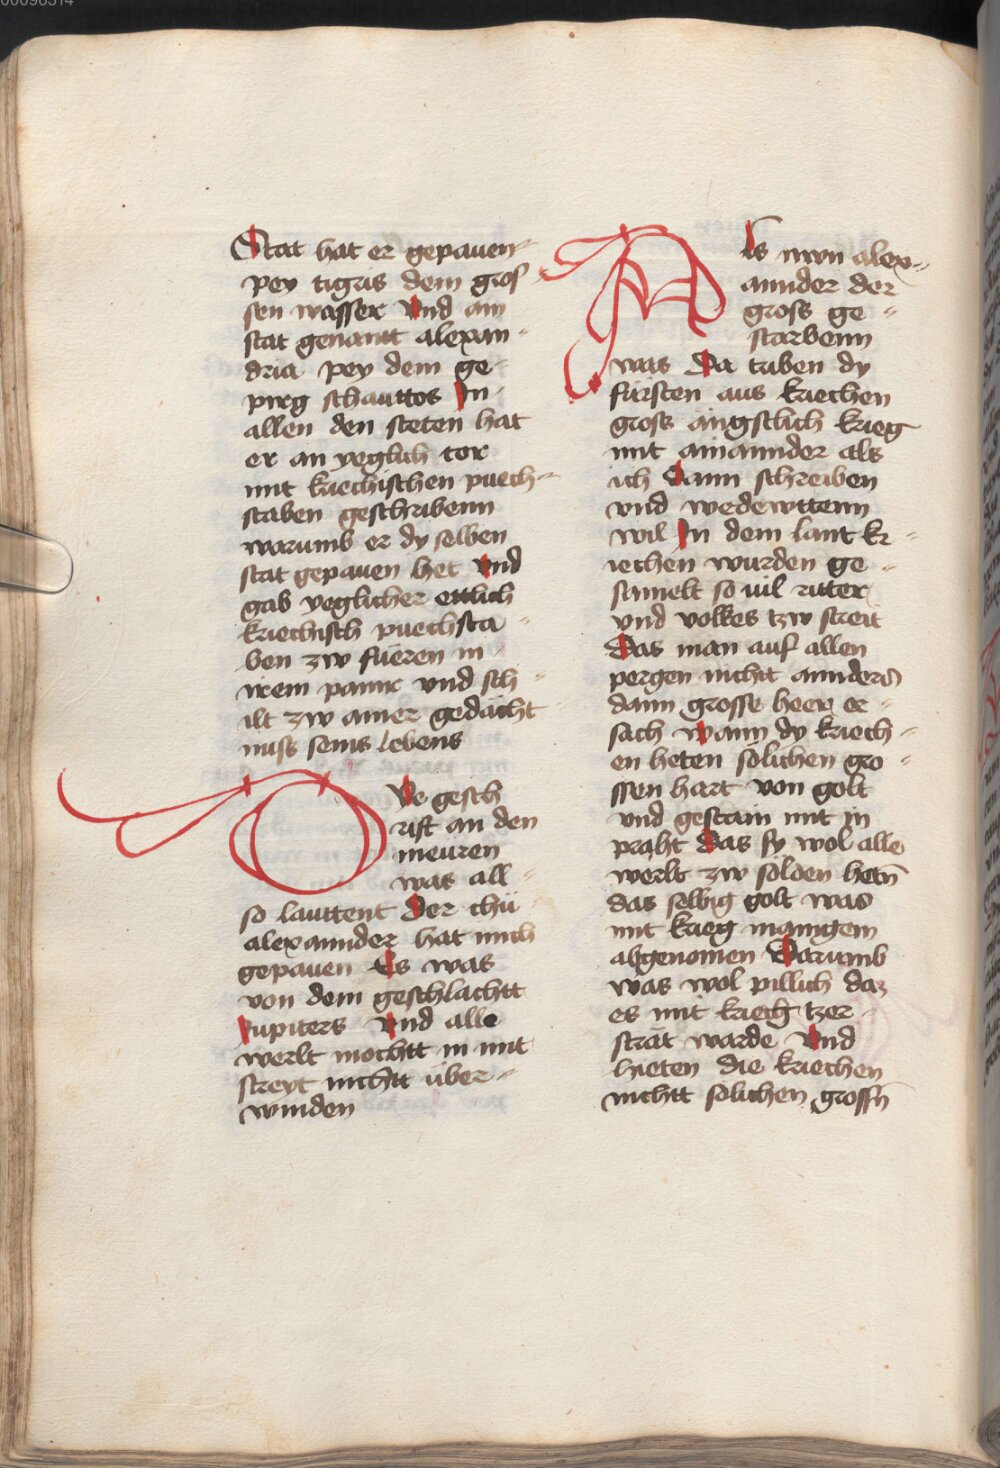 Stat hat er gepauen-
pey tigris dem gros
sen wasser Vnd ain
stat genantt alexan-
dria pey dem ge-
pirg schauttos In
allen den steten hat
er an yeglich tor
mit kriechischen puech-
staben geschribenn
warumb er dy selben
stat gepauen het Vnd
gab yeglicher ettlich
kriechisch puechsta-
ben zw fueren in
irem panir vnd sch-
ilt zw ainer gedächt
nuss seins lebens
DYe gesch
rift an den
meuren
was all-
so lauttent Der chü
alexannder hat mich
gepauen Es was
von dem geschlachtt
Iupiters Vnd alle
werlt mochtt in mit
streyt nichtt über-
winden
Als nwn alex-
annder der
gross ge-
storbenn
was Da taben dy
fürsten aus kriechen
gross ängstlich krieg
mit ainannder als
ich dann schreiben
vnd wedewttenn
wil In dem lant kr-
iechen wurden ge-
samelt so vil ritter
vnd volkes tzw streit
Das man auf allen
pergen nichtt annders
dann grosse heer er-
sach wann dy kriech-
en heten sölichen gro-
ssen hart von golt
vnd gestain mit in
praht Das sy wol alle
werlt zw sölden hetn̄
das selbig golt was
mit krieg manigem
abgenomen Darumb
was wol pillich daz
es mit kriech tzer-
strät warde Vnd
hieten die kriechen
nichtt solichen grossn̄